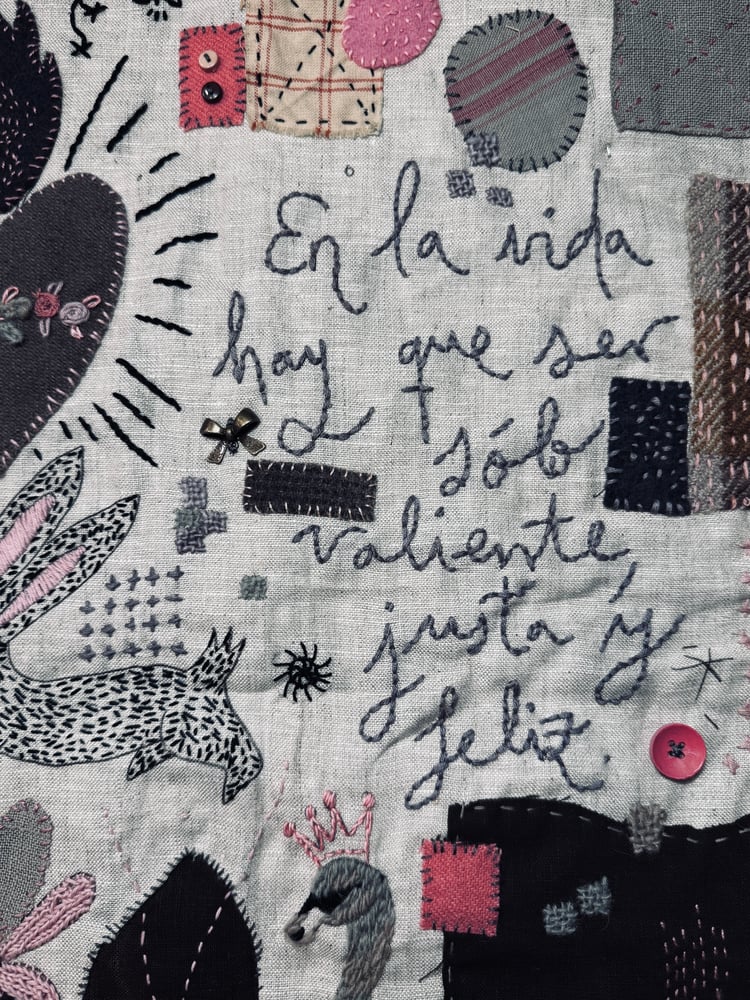 En la vida
hay que ser
sólo
valiente,
justa y
feliz.